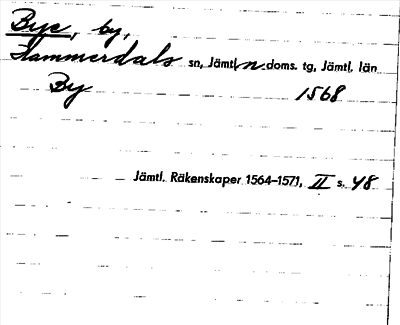 Bye, by,
Hammerdals sn, Jämtl. n. doms. tg, Jämtl. län
By 1568
Jämtl. Räkenskaper 1564–1571, II s. 48